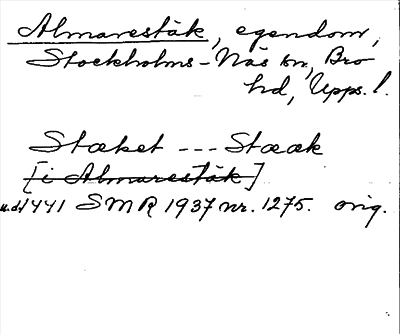 Almarestäk, egendom,
Stockholms-Näs sn, Bro
hd, Upps. l.
Stæket --- Stææk
[i Almarestäk]
u.d. 1441 SMR 1937 nr. 1275. orig.